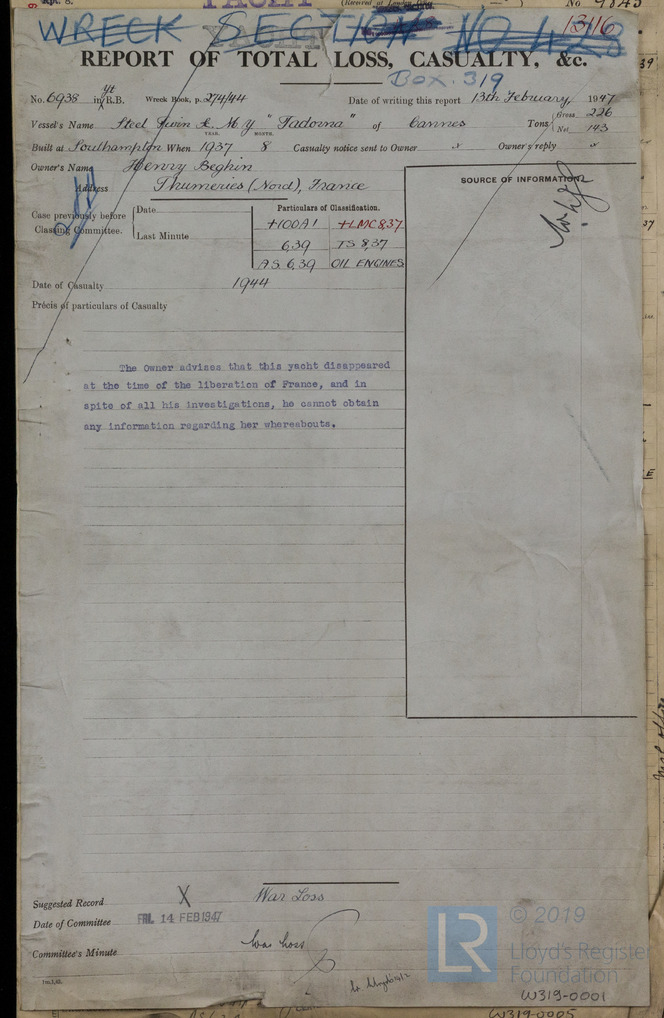 YACHT
WRECK SECTION NO 428
13116
REPORT OF TOTAL LOSS, CASUALTY, &c.
BOX. 319
No. 6938 in Yt R.B. Wreck Book, p. 274/44 Date of writing this report 13th February, 1947
Vessel's Name Steel Twin Sc. M Y "Tadorna" of Cannes Tons Gross 226
Net 143
Built at Southampton When YEAR. 1937 MONTH. 8 Casualty notice sent to Owner x Owner's reply x
Owner's Name Henry Beghin
Address Thumeries (Nord), France
SOURCE OF INFORMATION
Case previously before Classing Committee.
Date
Last Minute
Particulars of Classification.
+100A1 +LMC 8,37
6,39 TS 8,37
A.S. 6,39 OIL ENGINES
Date of Casualty 1944
Précis of particulars of Casualty
The Owner advises that this yacht disappeared
at the time of the liberation of France, and in
spite of all his investigations, he cannot obtain
any information regarding her whereabouts.
Suggested Record X War Loss
Date of Committee FRI. 14 FEB 1947
Committee's Minute War Loss
© 2019
LR
Lloyd's Register
Foundation
W319-0001
W319-0005